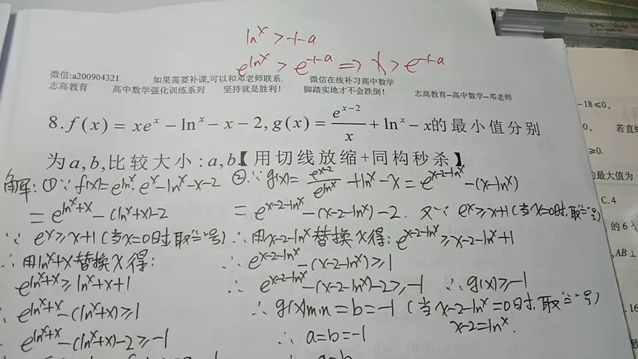 ln^x > -1-a
e^{ln^x} > e^{-1-a} ⇒ x > e^{-1-a}
微信:a200904321 如果需要补课,可以和邓老师联系. 微信在线补习高中数学
志高教育 高中数学强化训练系列 坚持就是胜利! 脚踏实地才不会跌倒! 志高教育--高中数学--邓老师
8.f(x) = xe^x - ln^x - x - 2, g(x) = \frac{e^{x-2}}{x} + ln^x - x的最小值分别
为a,b,比较大小:a,b【用切线放缩+同构秒杀】
解:①∵f(x)=e^{ln^x}·e^x-ln^x-x-2
=e^{ln^x+x}-(ln^x+x)-2
∵e^x≥x+1(当x=0时取"="号)
∴用ln^x+x替换x得:
e^{ln^x+x}≥ln^x+x+1
∴e^{ln^x+x}-(ln^x+x)≥1
∴e^{ln^x+x}-(ln^x+x)-2≥-1
②∵g(x)=\frac{e^{x-2}}{e^{ln^x}}+ln^x-x=e^{x-2-ln^x}-(x-ln^x)
=e^{x-2-ln^x}-(x-2-ln^x)-2. 又∵e^x≥x+1(当x=0时,取"="号)
∴用x-2-ln^x替换x得:e^{x-2-ln^x}≥x-2-ln^x+1
∴e^{x-2-ln^x}-(x-2-ln^x)≥1
∴e^{x-2-ln^x}-(x-2-ln^x)-2≥-1 ∴g(x)≥-1
∴g(x)min=b=-1(当x-2-ln^x=0时,取"="号)
x-2=ln^x.
∴a=b=-1
-18≤0,
若直
≥0.
的最大值为
C.4
的6
AB⊥